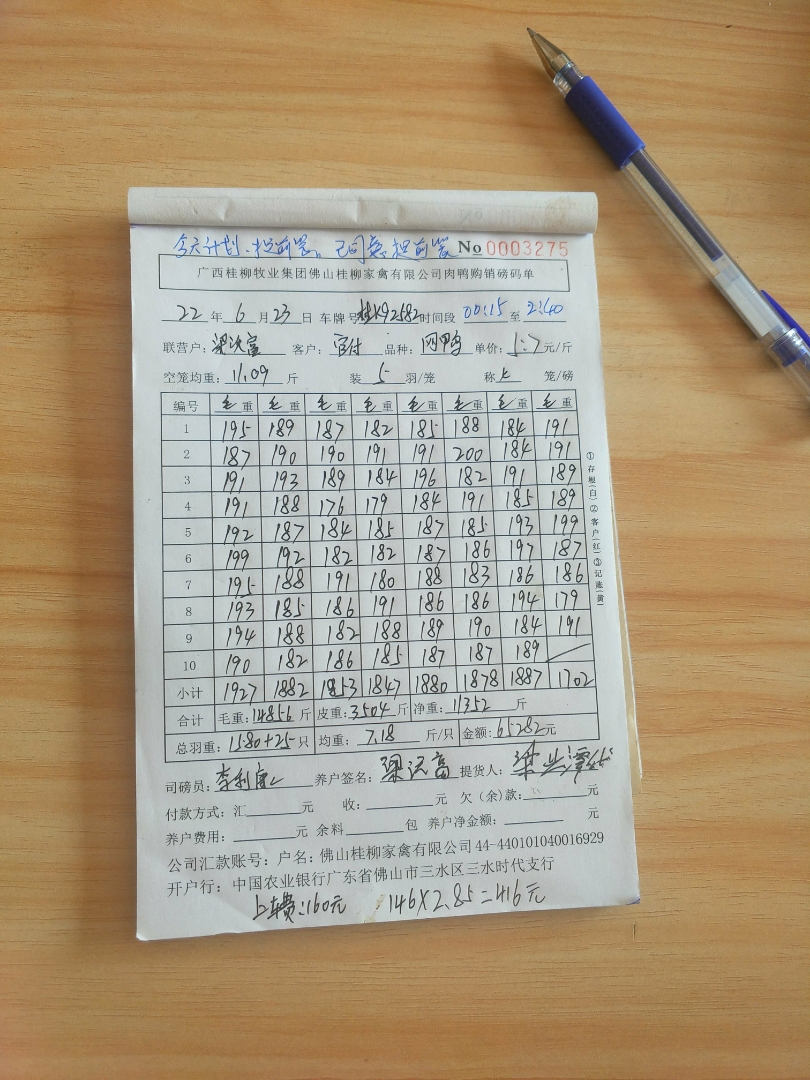 今天计划.提前装。已同意提前装 No 0003275
广西桂柳牧业集团佛山桂柳家禽有限公司肉鸭购销磅码单
22 年 6 月 23 日 车牌号 桂K92582 时间段 00:15 至 2:40
联营户: 客户: 品种: 鸭 单价: 5.7 元/斤
空笼均重: 11.09 斤 装 5 羽/笼 称 笼/磅
编号 毛重 毛重 毛重 毛重 毛重 毛重 毛重 毛重
1 195 189 187 182 185 188 184 191
2 187 190 190 191 191 200 184 191
3 191 193 189 184 196 182 191 189
4 191 188 176 179 184 191 185 189
5 192 187 184 185 187 185 193 199
6 199 192 182 182 187 186 197 187
7 195 188 191 180 188 183 186 186
8 193 185 186 191 186 186 194 179
9 194 188 182 188 189 190 184 191
10 190 182 186 185 187 187 189
小计 1927 1882 1853 1847 1880 1878 1887 1702
合计 毛重: 14856 斤 皮重: 3504 斤 净重: 11352 斤
总羽重: 1580+25 只 均重: 7.18 斤/只 金额: 65282 元
司磅员: 养户签名: 提货人:
付款方式: 汇 元 收: 元 欠(余)款: 元
养户费用: 元 余料 包 养户净金额: 元
公司汇款账号: 户名: 佛山桂柳家禽有限公司 44-440101040016929
开户行: 中国农业银行广东省佛山市三水区三水时代支行
上车费:160元 146×2.85=416元
①存根(白)②客户(红)③记账(黄)